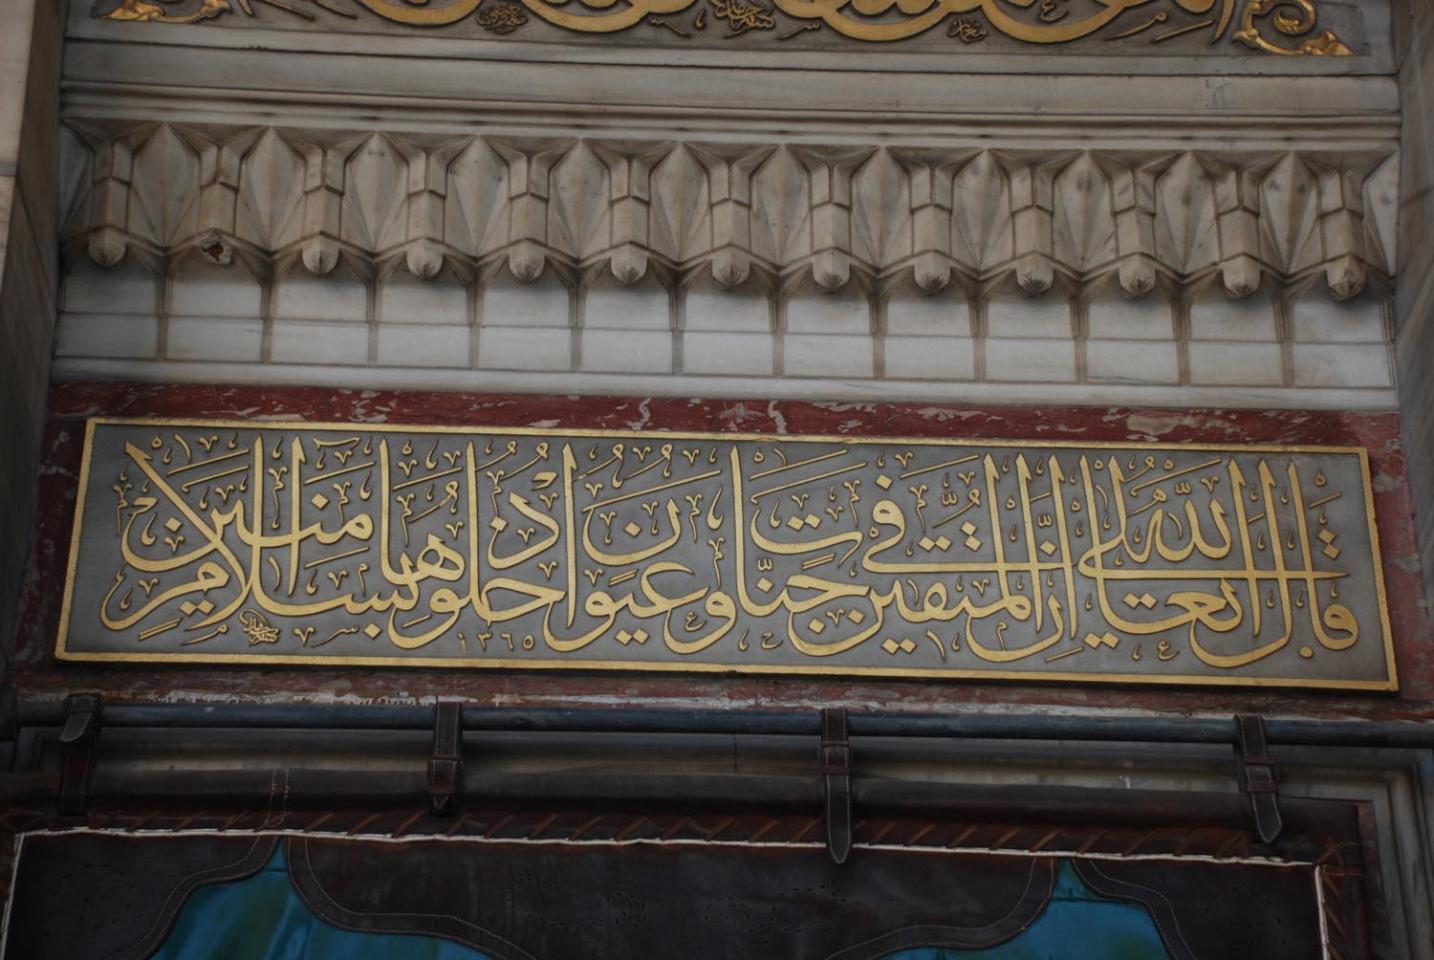 قال الله تعالى إن المتقين في جنات وعيون ادخلوها بسلام آمنين
١٣٦٥